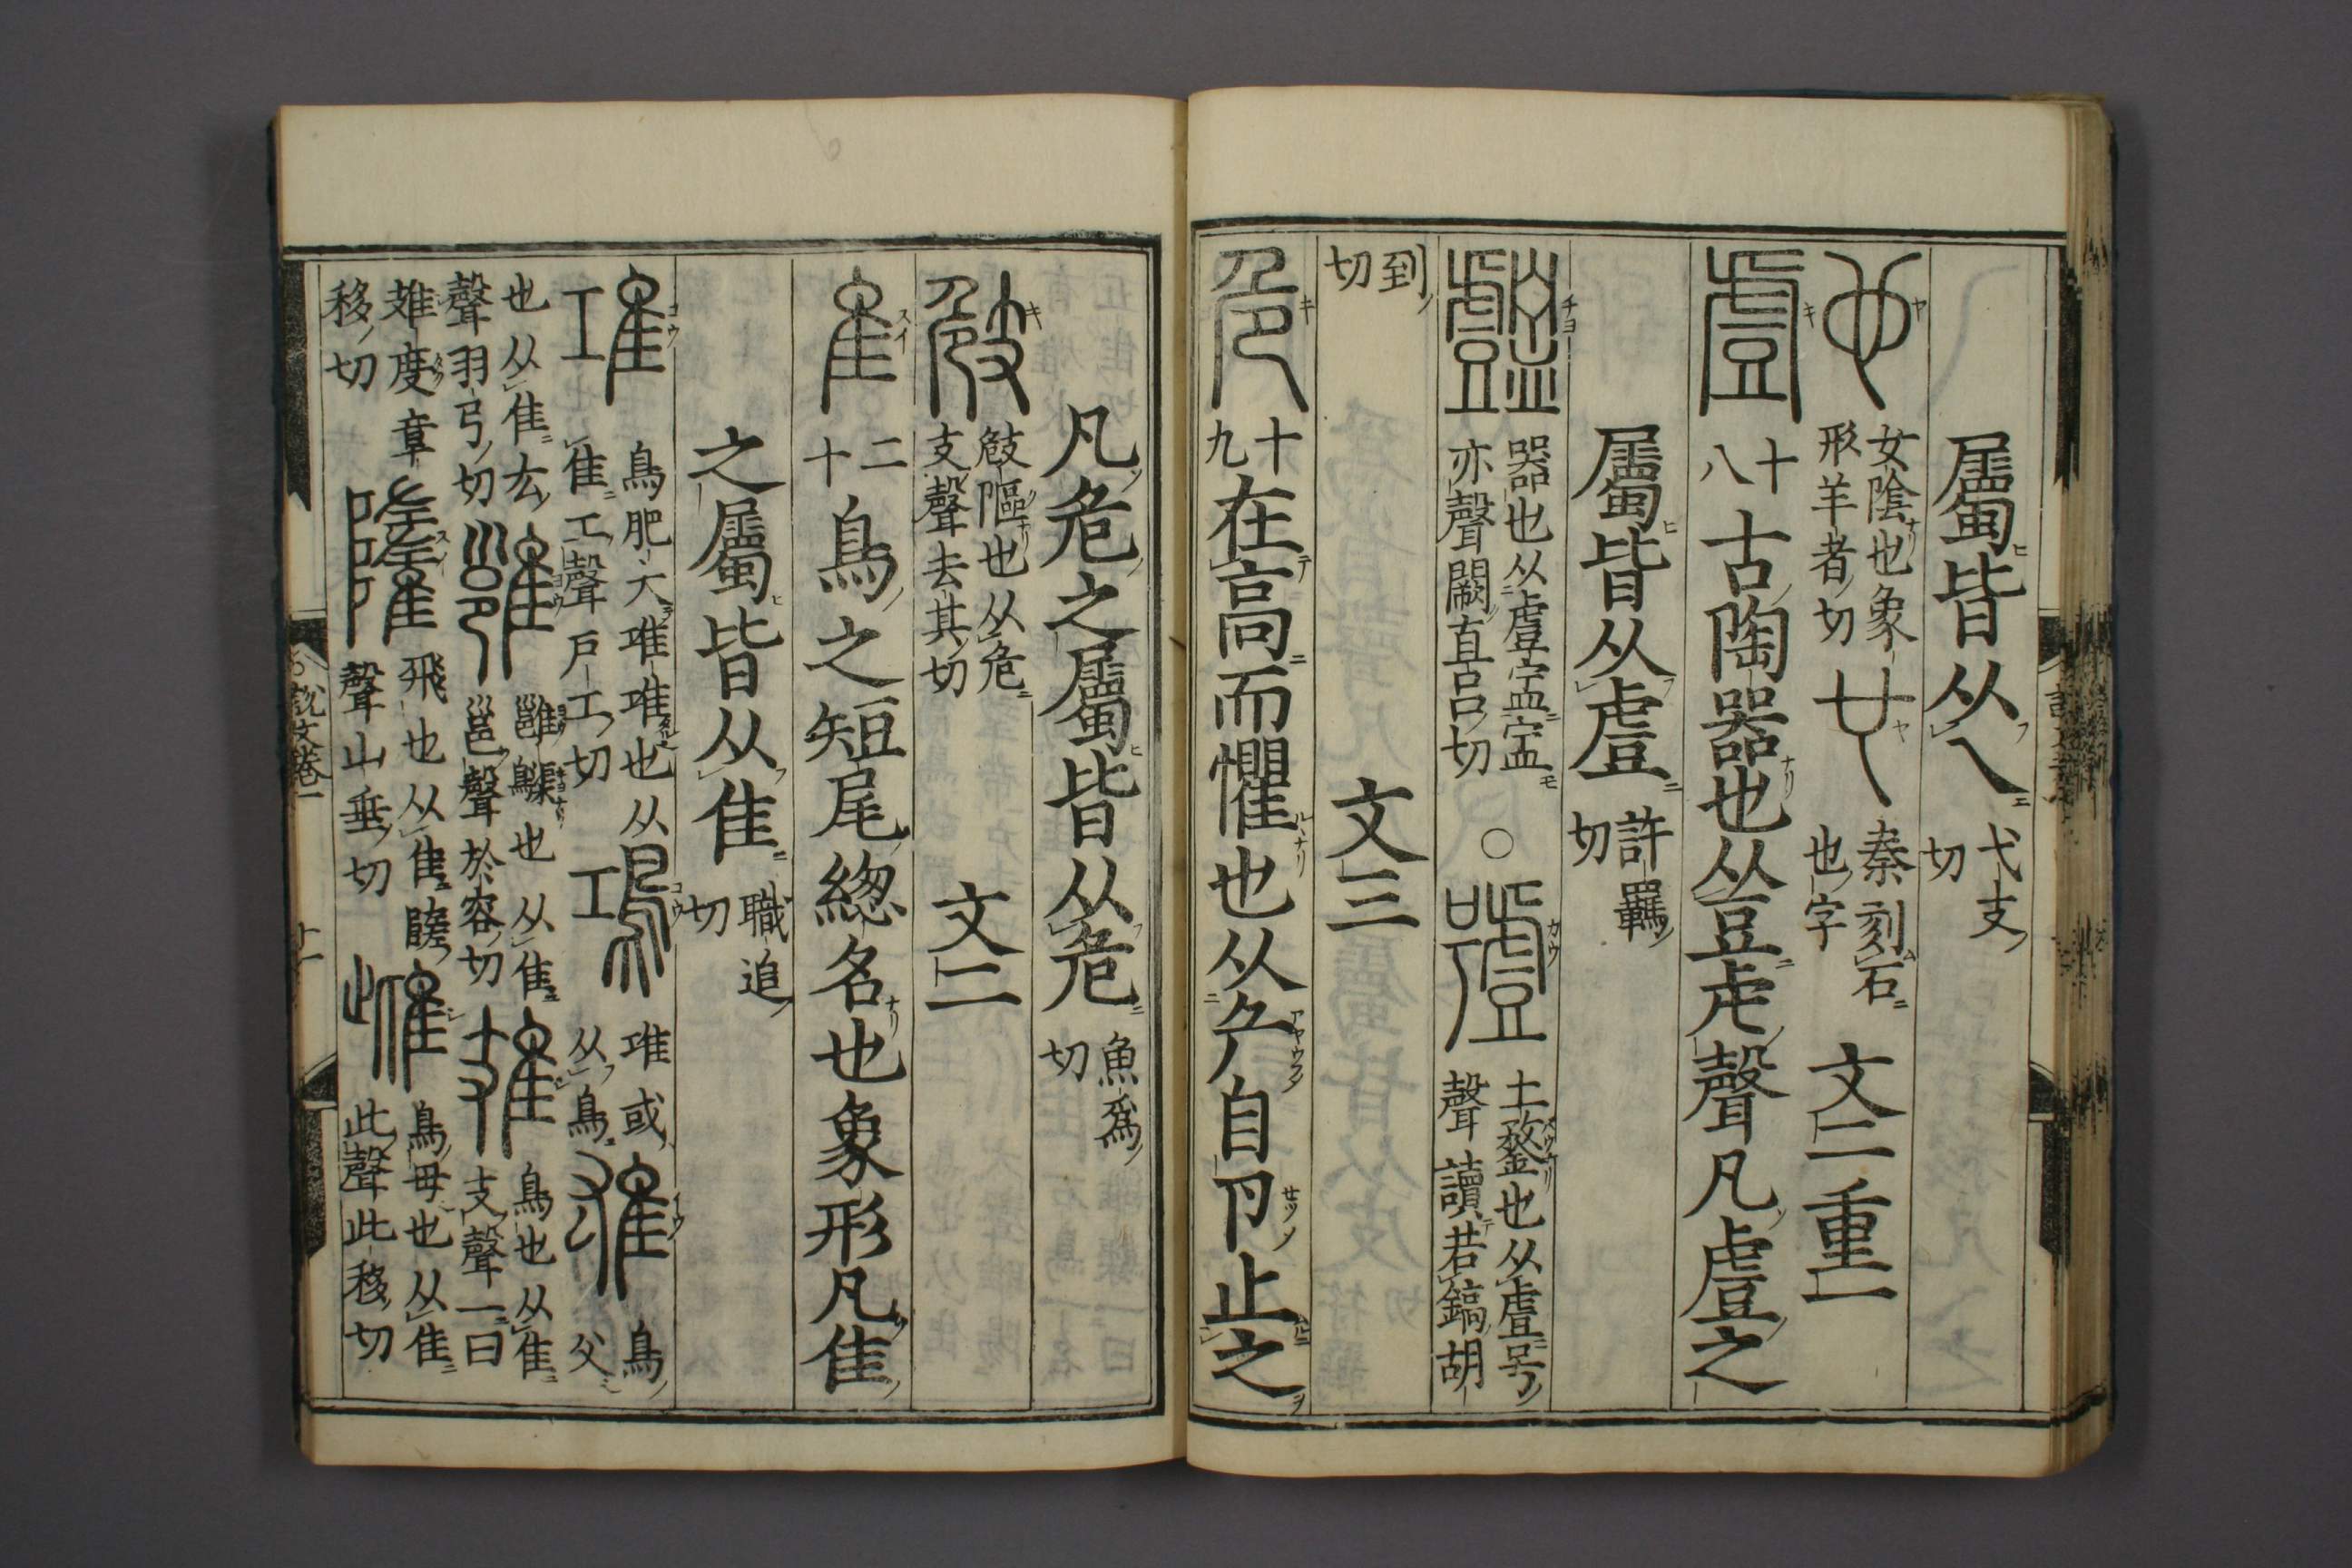 屬皆从乁 弋支切
女陰也象形羊者切 秦刻石也字 文二重一
十八 古陶器也从豆虍聲凡䖒之
屬皆从䖒 許羈切
器也从䖒宁皿宁皿亦聲闕直呂切 ○ 土鍪也从䖒号聲讀若鎬胡
到切 文三
十九 在高而懼也从厃自卪止之
凡危之屬皆从危 魚爲切
䧢也从危支聲去其切 文二
二十 鳥之短尾緫名也象形凡隹
之屬皆从隹 職追切
鳥肥大隹工聲戶工切 鳿或从鳥 鳥父
也从隹厷聲羽弓切 雝䳶也从隹邕聲於容切 鳥也从隹支聲一曰
雉度章移切 飛也从隹隓聲山垂切 鳥母也从隹此聲此移切
説文卷一 十一